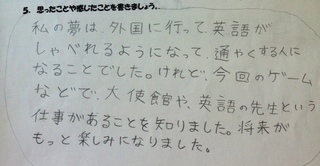 5. 思ったことや感じたことを書きましょう。
私の夢は、外国に行って、英語が
しゃべれるようになって、通やくする人に
なることでした。けれど、今回のゲーム
などで、大使館や、英語の先生という
仕事があることを知りました。将来が
もっと楽しみになりました。